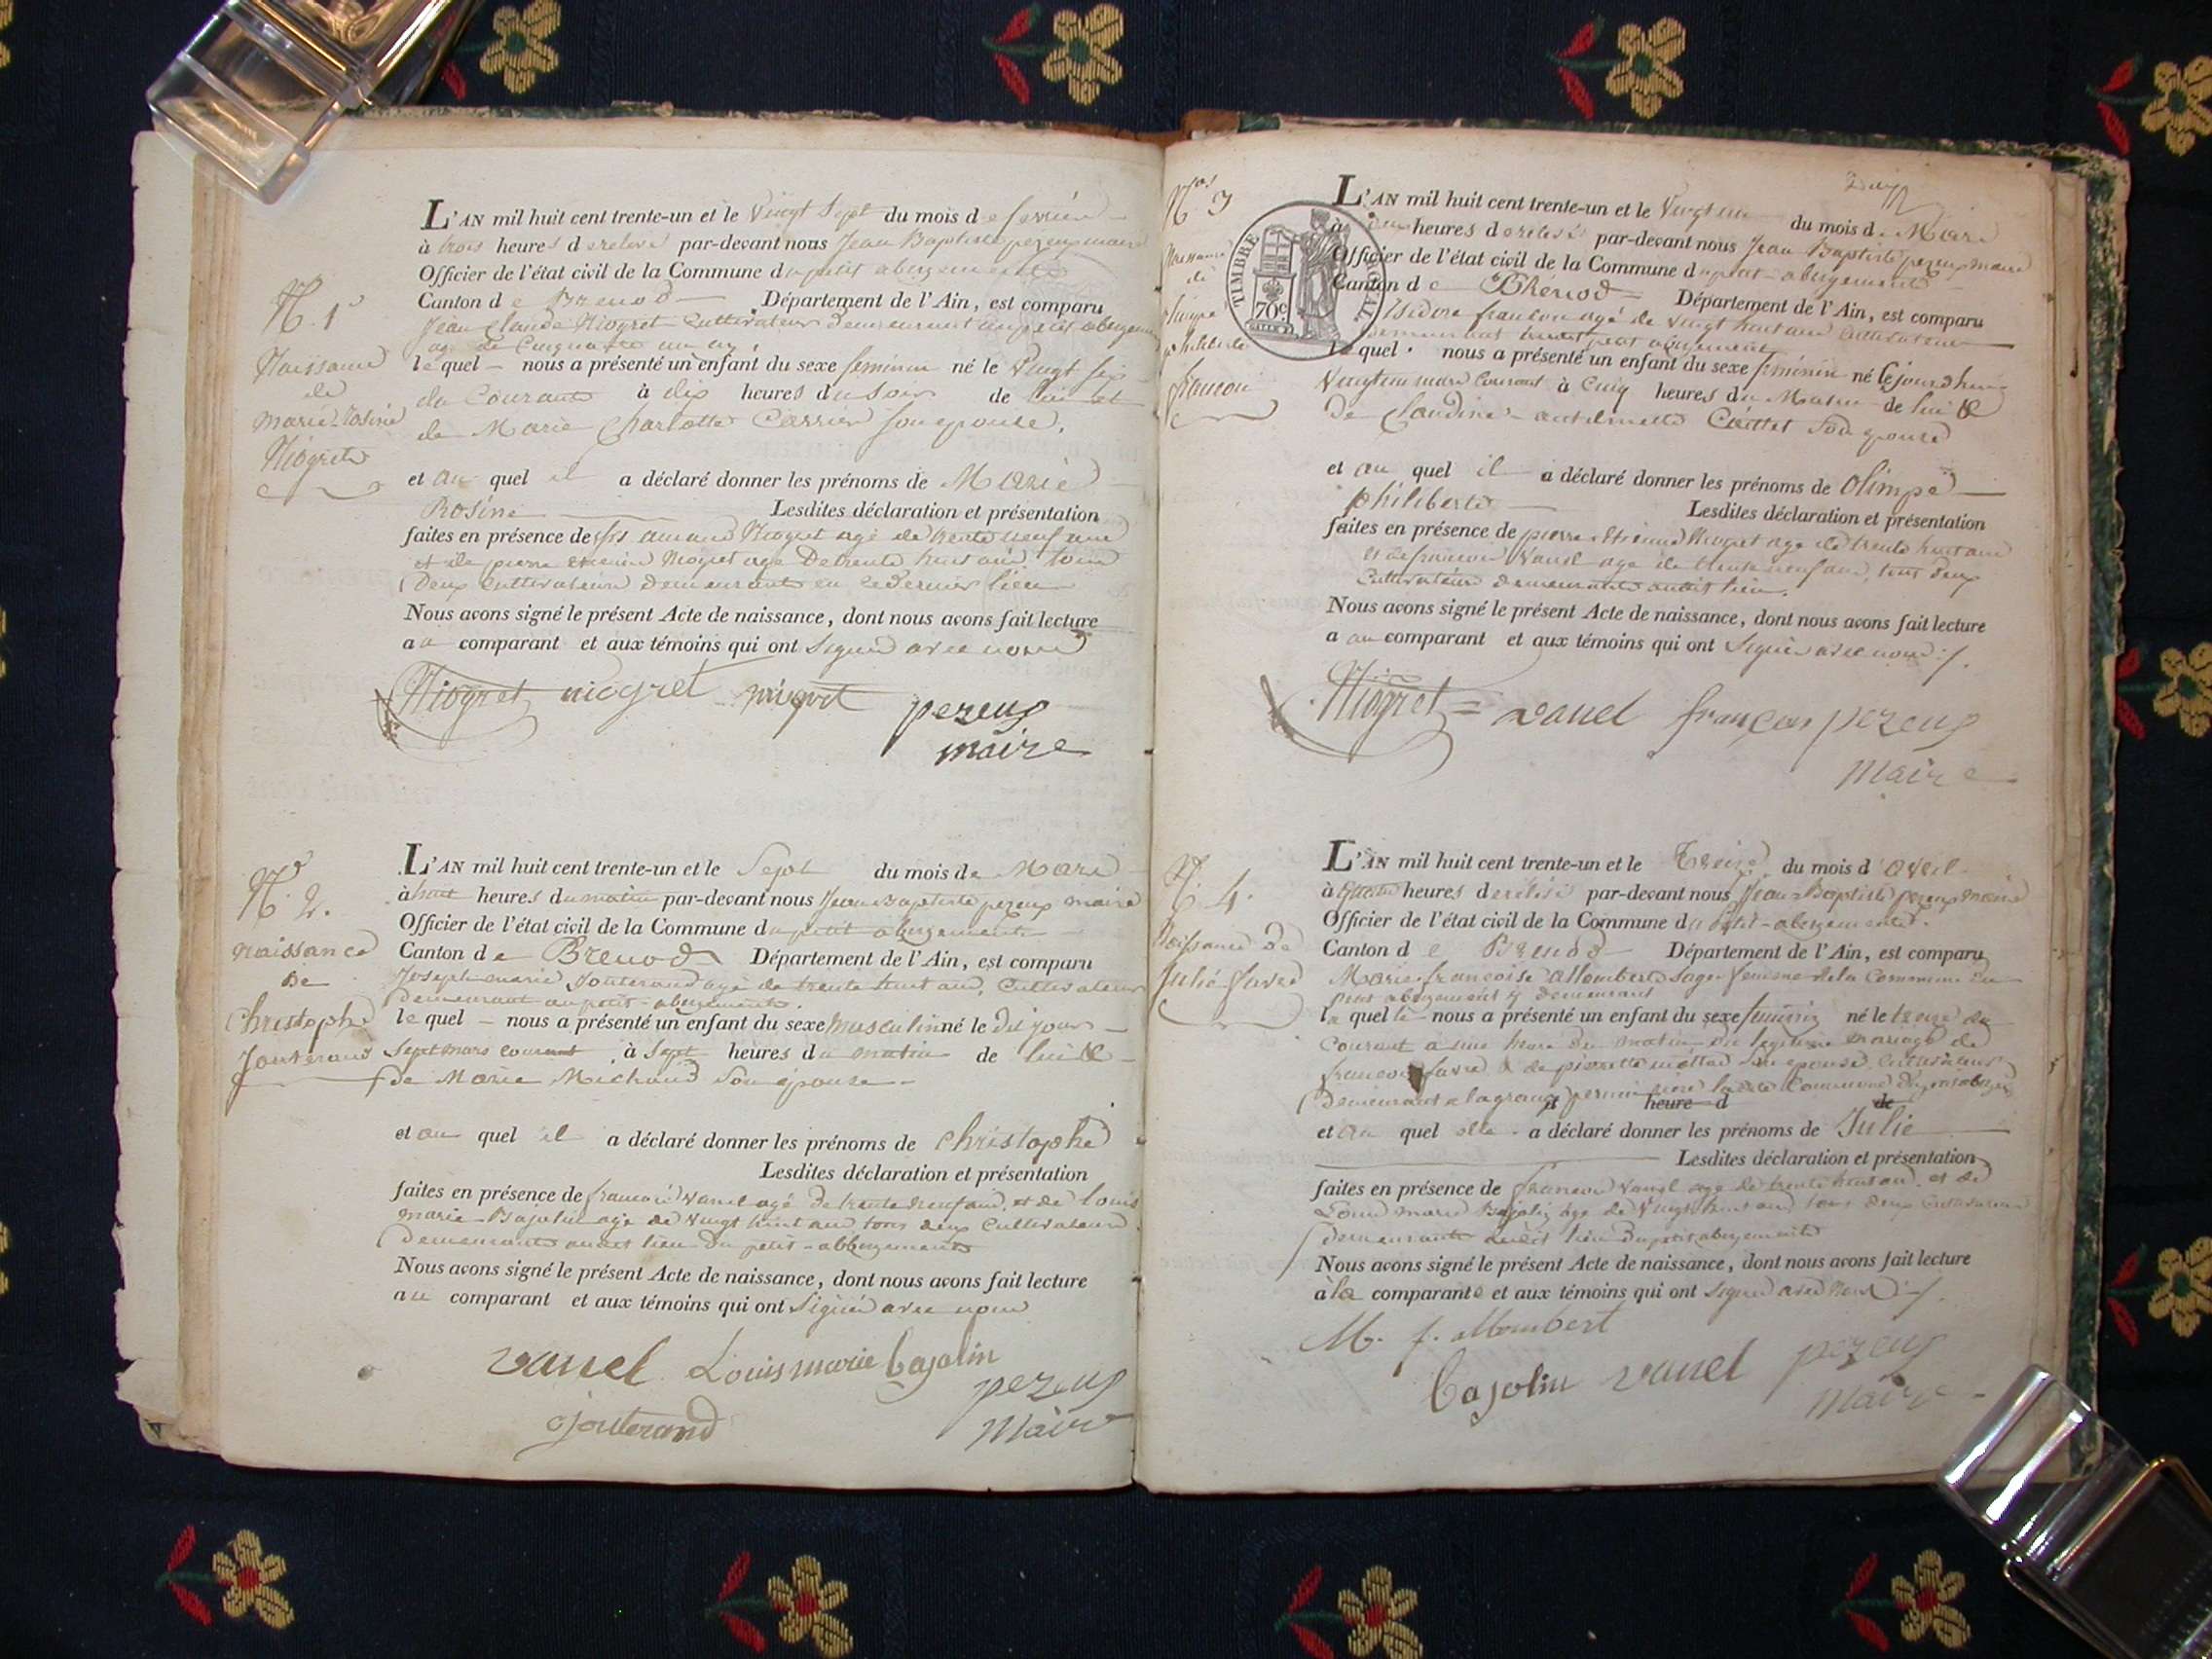 L'AN mil huit cent trente-un et le Vingt Sept du mois de fevrier
à trois heures de relevé par-devant nous Jean Baptiste pezeux maire
Officier de l'état civil de la Commune du petit abergement
Canton de Brenod Département de l'Ain, est comparu
Jean Claude Niogret Cultivateur demeurant au petit abergement
agé de Cinquante un ans
lequel nous a présenté un enfant du sexe feminin né le Vingt six
du Courant à dix heures du Soir de lui et
de Marie Charlotte Carrier son epouse,
et au quel il a déclaré donner les prénoms de Marie
Rosine Lesdites déclaration et présentation
faites en présence de amand Niogret agé de trente neuf ans
et de pierre etienne Niogret agé De trente huit ans tous
Deux Cultivateurs Demeurants en ce dernier lieu
Nous avons signé le présent Acte de naissance, dont nous avons fait lecture
au comparant et aux témoins qui ont Signé avec nous
Niogret niogret niogret pezeux
maire
N. 1er
Naissance
de
Marie Rosine
Niogret
L'AN mil huit cent trente-un et le Sept du mois de Mars
à huit heures du matin par-devant nous Jean Baptiste pezeux maire
Officier de l'état civil de la Commune du petit abergement
Canton de Brenod Département de l'Ain, est comparu
Joseph marie Jouterand agé de trente huit ans, Cultivateur
Demeurant au petit-abergement.
lequel nous a présenté un enfant du sexe masculin né le du jour
Sept mars courant à Sept heures du matin de lui &
de Marie Michaud Son épouse
et au quel il a déclaré donner les prénoms de Christophe
Lesdites déclaration et présentation
faites en présence de francois Vanel agé de trente neuf ans, et de Louis
marie Bajolin agé de Vingt huit ans tous deux Cultivateurs
Demeurants audit lieu Du petit-abbergement
Nous avons signé le présent Acte de naissance, dont nous avons fait lecture
au comparant et aux témoins qui ont Signé avec nous
vanel Louis marie bajolin
pezeux
Jouterand Maire
N° 2.
naissance
De
Christophe
Jouterand
L'AN mil huit cent trente-un et le Vingt un du mois de Mars
à heures de relevé par-devant nous Jean Baptiste pezeux maire
Officier de l'état civil de la Commune du petit-abergement
Canton de Brénod Département de l'Ain, est comparu
Isidore francon agé de Vingt huit ans Cultivateur
demeurant petit abergement
lequel nous a présenté un enfant du sexe féminin né Cejourdhui
Vingt un mars Courant à Cinq heures du Matin de lui &
De Claudine antelmette Cottet Son epouse
et au quel il a déclaré donner les prénoms de Olimpe
philiberte Lesdites déclaration et présentation
faites en présence de pierre Etienne Niogret agé de trente huit ans
et de francois Vanel agé de trente neuf ans, tous deux
Cultivateurs demeurants audit lieu.
Nous avons signé le présent Acte de naissance, dont nous avons fait lecture
a au comparant et aux témoins qui ont Signé avec nous
Niogret vanel françois pezeux
Maire
N° 3
Naissance
de
Olimpe
philiberte
francon
TIMBRE ROYAL
70c
L'AN mil huit cent trente-un et le Treize du mois d'avril
à quatre heures de relevé par-devant nous Jean-Baptiste pezeux maire
Officier de l'état civil de la Commune du petit-abergement.
Canton de Brenod Département de l'Ain, est comparu
Marie francoise allombert Sage femme de la Commune du
petit abergement y demeurant
laquelle nous a présenté un enfant du sexe feminin né le treize du
Courant a une heure du matin du legitime mariage de
francois favre & de pierrette mettas Son epouse, Cultivateurs
Demeurant a la grange du petit abergement
à heure d de
et au quel elle a déclaré donner les prénoms de Julie
Lesdites déclaration et présentation
faites en présence de francois Vanel agé de trente huit ans et de
Louis marie Bajolin agé de Vingt huit ans tous deux Cultivateurs
demeurants audit lieu Du petit abergement
Nous avons signé le présent Acte de naissance, dont nous avons fait lecture
à la comparante et aux témoins qui ont Signé avec Nous
M. f. allombert
bajolin vanel pezeux
Maire
N. 4.
Naissance De
Julie favre